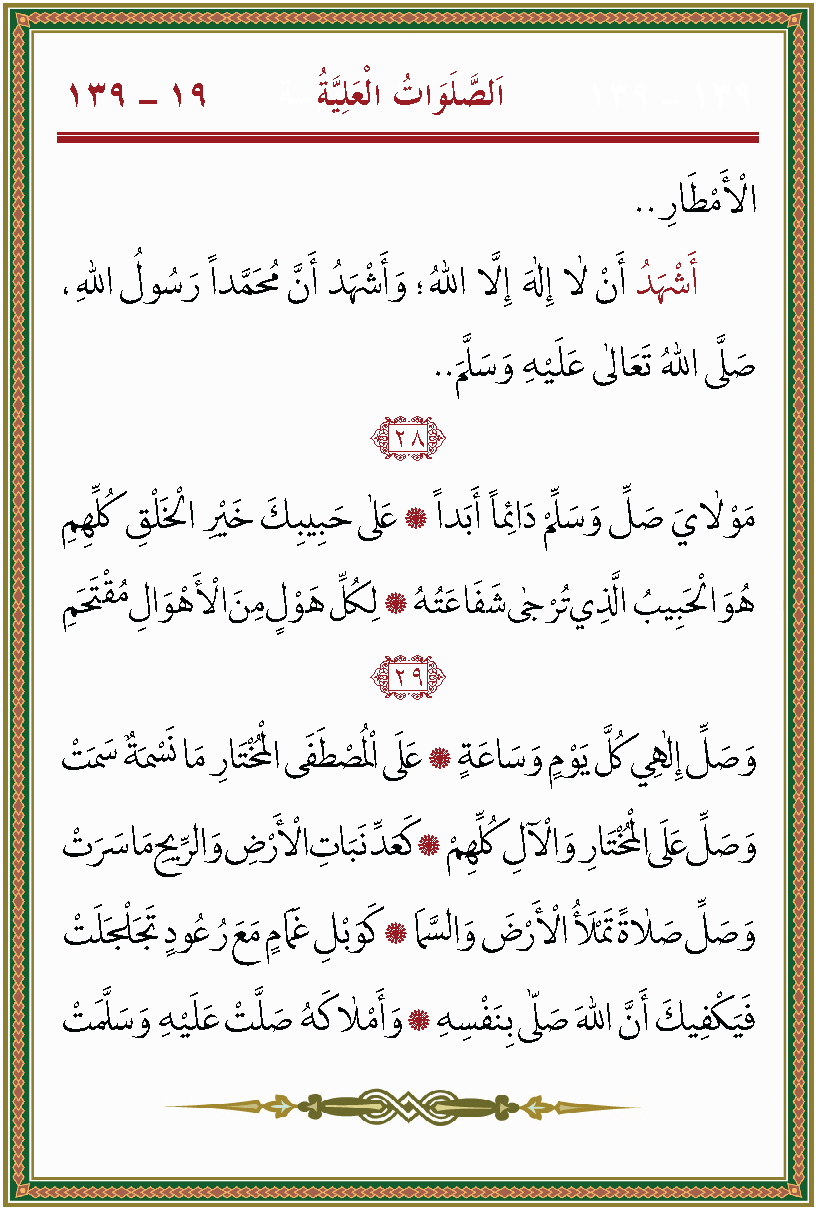 اَلصَّلَوَاتُ الْعَلِيَّةُ ١٩ – ١٣٩
الْأَمْطَارِ ..
أَشْهَدُ أَنْ لٰا إِلٰهَ إِلَّا اللهُ؛ وَأَشْهَدُ أَنَّ مُحَمَّداً رَسُولُ اللهِ،
صَلَّى اللهُ تَعَالٰى عَلَيْهِ وَسَلَّمَ..
٢٨
مَوْلٰايَ صَلِّ وَسَلِّمْ دَائِماً أَبَداً ۞ عَلٰى حَبِيبِكَ خَيْرِ الْخَلْقِ كُلِّهِمِ
هُوَ الْحَبِيبُ الَّذِي تُرْجٰى شَفَاعَتُهُ ۞ لِكُلِّ هَوْلٍ مِنَ الْأَهْوَالِ مُقْتَحَمِ
٢٩
وَصَلِّ إِلٰهِي كُلَّ يَوْمٍ وَسَاعَةٍ ۞ عَلَى الْمُصْطَفَى الْمُخْتَارِ مَا نَسْمَةٌ سَمَتْ
وَصَلِّ عَلَى الْمُخْتَارِ وَالْآلِ كُلِّهِمْ ۞ كَعَدِّ نَبَاتِ الْأَرْضِ وَالرِّيحِ مَا سَرَتْ
وَصَلِّ صَلٰاةً تَمْلَأُ الْأَرْضَ وَالسَّمَا ۞ كَوَبْلِ غَمَامٍ مَعَ رُعُودٍ تَجَلْجَلَتْ
فَيَكْفِيكَ أَنَّ اللهَ صَلّٰى بِنَفْسِهِ ۞ وَأَمْلٰاكَهُ صَلَّتْ عَلَيْهِ وَسَلَّمَتْ